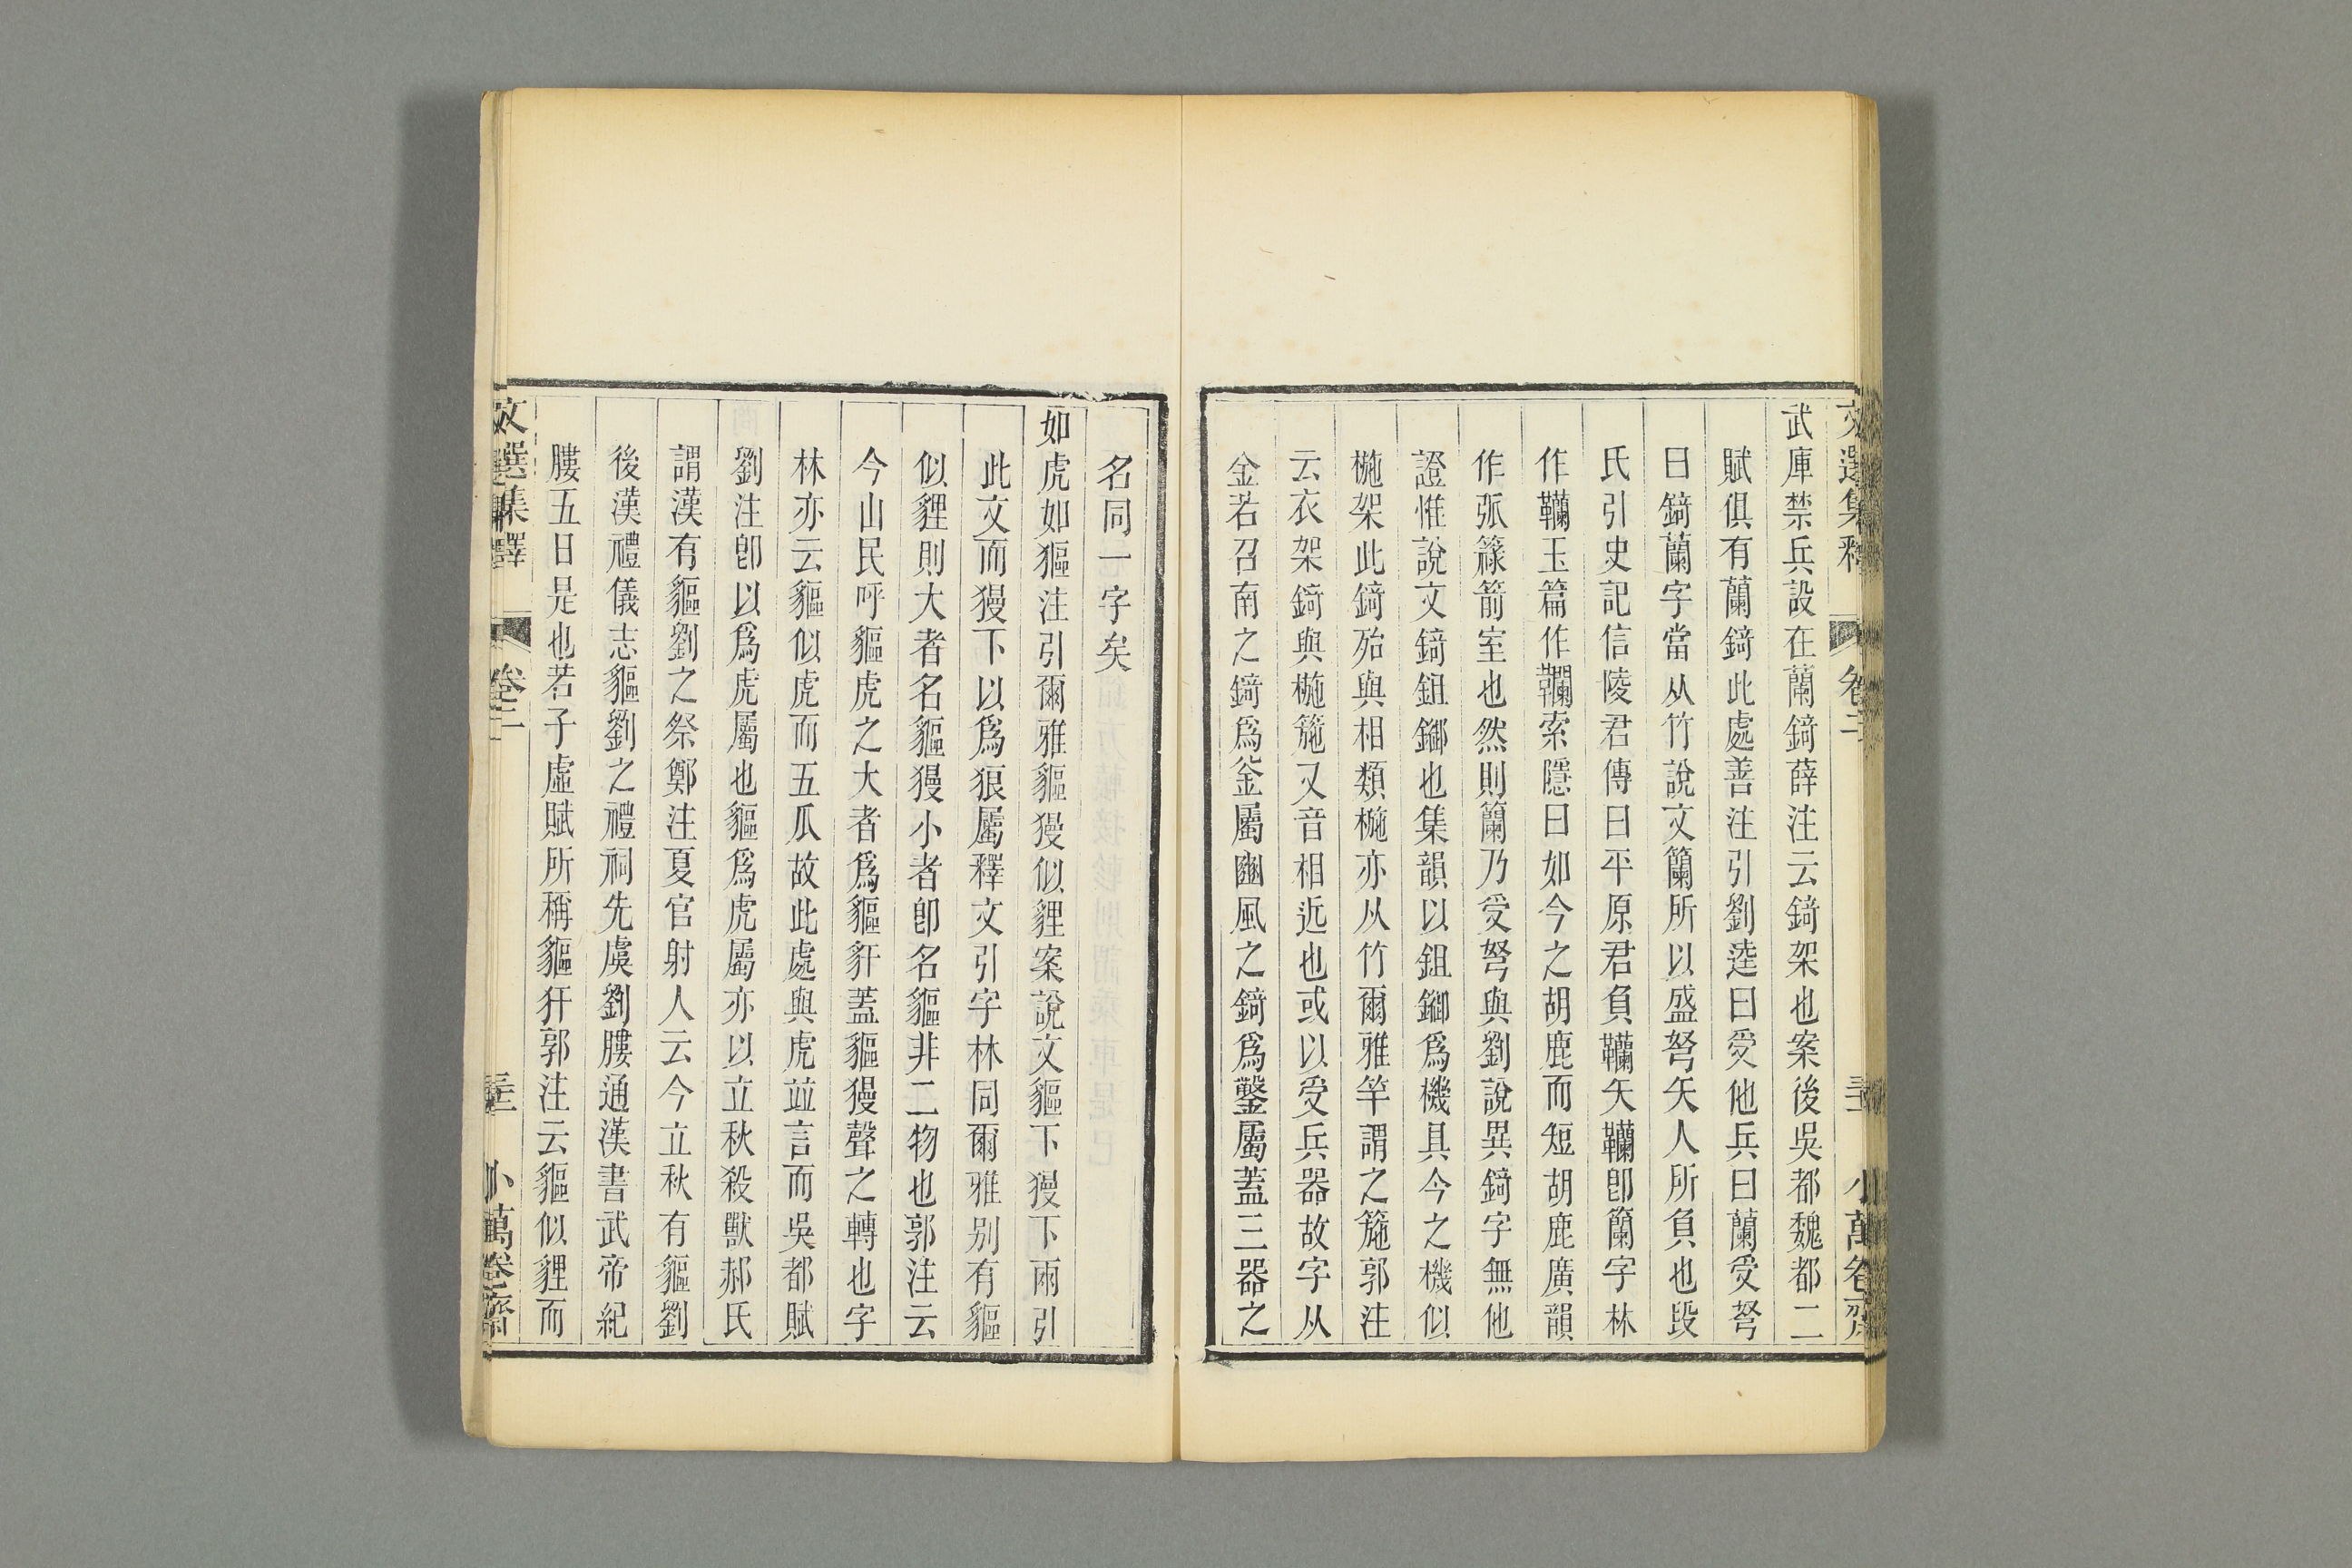 文選集釋 卷三 小萬卷齋
武庫禁兵設在蘭錡薛注云錡架也案後吳都魏都二
賦俱有蘭錡此處善注引劉逵曰受他兵曰蘭受弩
曰錡蘭字當从竹說文籣所以盛弩矢人所負也段
氏引史記信陵君傳曰平原君負韊矢韊卽籣字林
作韊玉篇作韊索隱曰如今之胡鹿而短胡鹿廣韻
作弧簶箭室也然則籣乃受弩與劉說異錡字無他
證惟說文錡鉏鋙也集韻以鉏鋙爲機具今之機似
椸架此錡殆與相類椸亦从竹爾雅竿謂之箷郭注
云衣架錡與椸箷又音相近也或以受兵器故字从
金若召南之錡爲釜屬豳風之錡爲鑿屬蓋三器之
名同一字矣
如虎如貙注引爾雅貙獌似貍案說文貙下獌下兩引
此文而獌下以爲狼屬釋文引字林同爾雅別有貙
似貍則大者名貙獌小者卽名貙非二物也郭注云
今山民呼貙虎之大者爲貙豻蓋貙獌聲之轉也字
林亦云貙似虎而五爪故此處與虎竝言而吳都賦
劉注卽以爲虎屬也貙爲虎屬亦以立秋殺獸郝氏
謂漢有貙劉之祭鄭注夏官射人云今立秋有貙劉
後漢禮儀志貙劉之禮祠先虞劉膢通漢書武帝紀
膢五日是也若子虛賦所稱貙犴郭注云貙似貍而
文選集釋 卷三 小萬卷齋